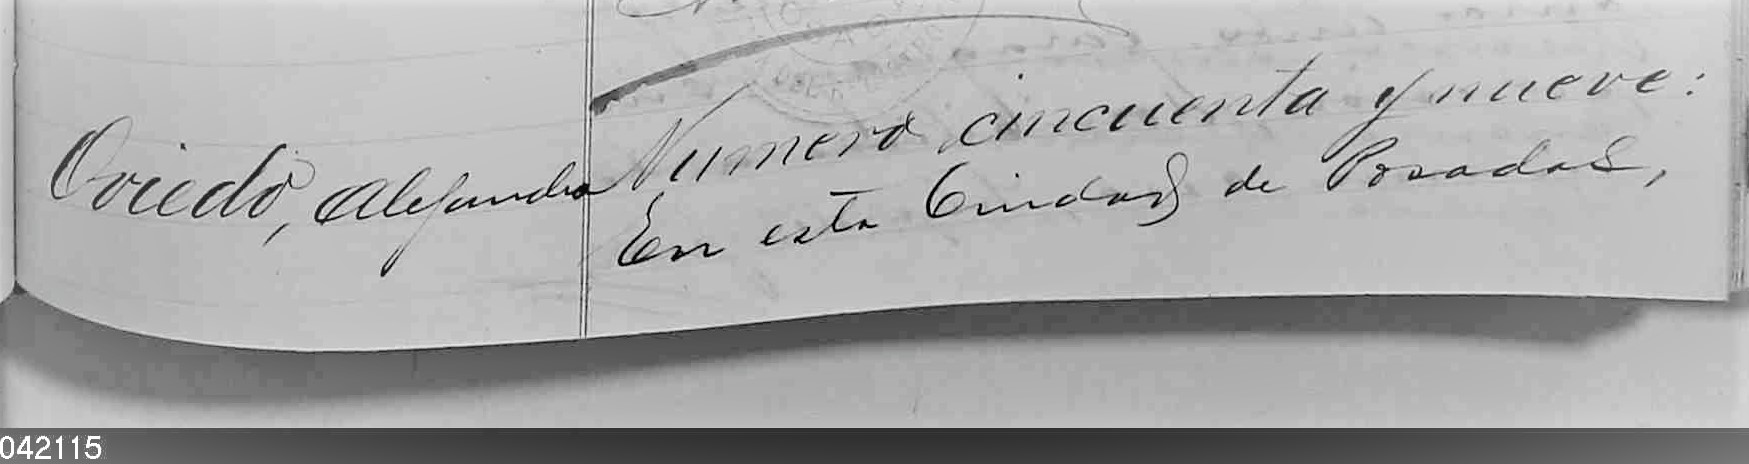 Oviedo, Alejandra
Numero cincuenta y nueve:
En esta Ciudad de Posadas,
042115